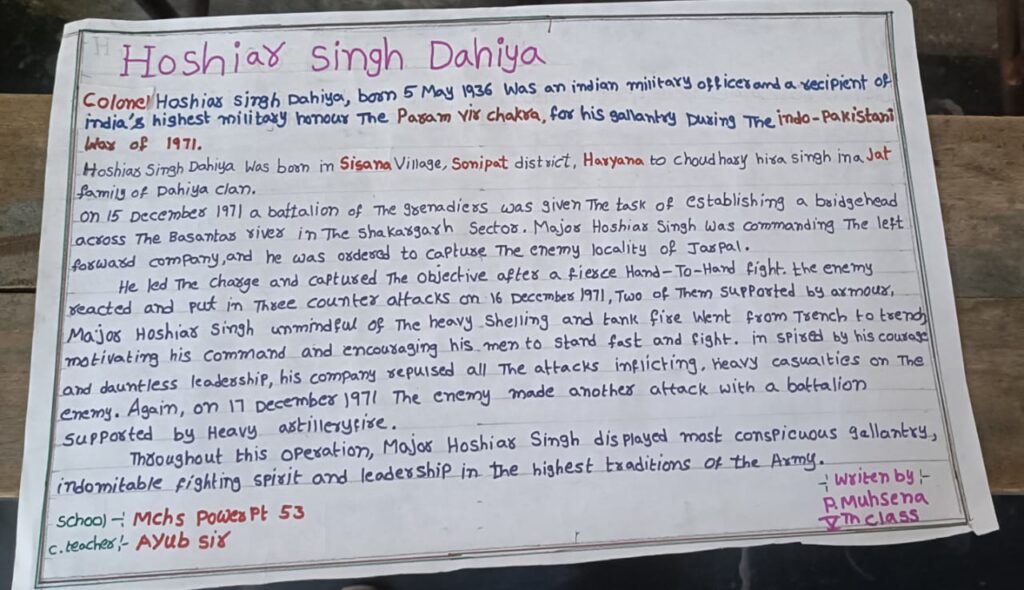 Hoshiar Singh Dahiya
Colonel Hoshiar singh Dahiya, born 5 May 1936 was an indian military officer and a recipient of
india's highest military honour The Param Vir chakra, for his gallantry During The indo-Pakistani
War of 1971.
Hoshiar Singh Dahiya was born in Sisana Village, Sonipat district, Haryana to choudhary hira singh in a Jat
family of Dahiya clan.
on 15 December 1971 a battalion of The grenadiers was given The task of establishing a bridgehead
across The Basantar river in The shakargarh Sector. Major Hoshiar Singh was commanding The left
forward company, and he was ordered to capture The enemy locality of Jarpal.
He led The charge and captured The objective after a fierce Hand-To-Hand fight. the enemy
reacted and put in Three counter attacks on 16 December 1971, Two of Them supported by armour,
Major Hoshiar Singh unmindful of The heavy Shelling and tank fire went from Trench to trench
motivating his command and encouraging his men to stand fast and fight. in spired by his courage
and dauntless leadership, his company repulsed all The attacks inflicting, Heavy casualties on The
enemy. Again, on 17 December 1971 The enemy made another attack with a battalion
supported by Heavy artilleryfire.
Throughout this operation, Major Hoshiar Singh displayed most conspicuous gallantry,
indomitable fighting spirit and leadership in the highest traditions of the Army.
School :- Mchs PowerPt 53
C. teacher :- Ayub sir
:- Writen by :-
P. Muhsena
Vth class